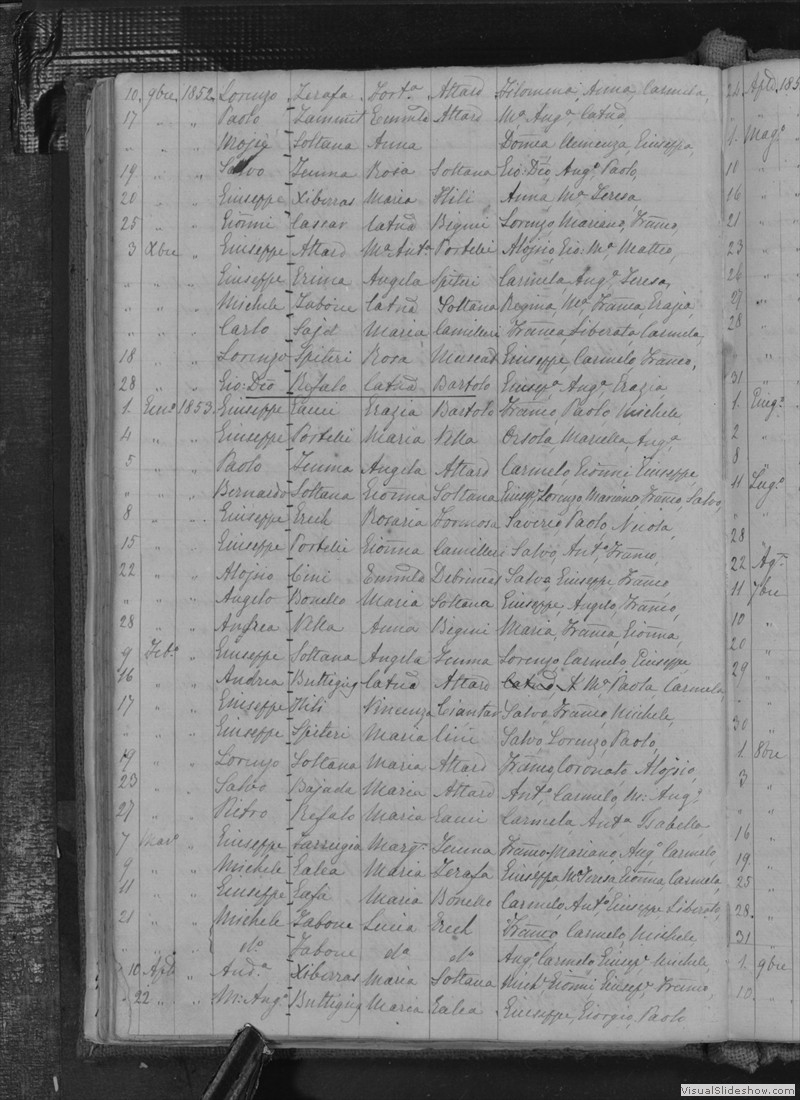 10 9bre 1852 Lorenzo Zerafa Fort.a Attard Filomena, Anna, Carmela,
17 " " Paolo Zammit Attard M.a Ang.a Cat.na
" " " Soltana Anna Domca Clemenza, Giuseppa,
19 " " Salvo Zemma Rosa Soltana Gio: Dio, Ang.o Paolo,
20 " " Giuseppe Xiberras Maria Hili Anna M.a Teresa
25 " " Gionni Cassar Catna Bigini Lorenzo, Mariano, Franco,
3 Xbre " Giuseppe Attard M.a Ant.a Portelli Alojsio, Gio: M.a Matteo,
" " " Giuseppe Grima Angela Spiteri Carmela, Ang.a Teresa,
" " " Michele Tabone Catna Soltana Regina, M.a, Franca Grazia,
" " " Carlo Sajd Maria Camilleri Franca, Liberata Carmela,
18 " " Lorenzo Spiteri Rosa Muscat Giuseppe, Carmelo, Franco,
28 " " Gio: Dio Refalo Catna Bartolo Giusep.a Ang.a Grazia
1. Gen.o 1853. Giuseppe Gauci Grazia Bartolo Franco, Paolo, Michele,
4 " " Giuseppe Portelli Maria Vella Orsola, Mariella, Ang.a
5 " " Paolo Zemma Angela Attard Carmelo, Gionni Giuseppe,
" " " Bernardo Soltana Gionna Soltana Lorenzo, Mariano, Franco, Salvo,
8 " " Giuseppe Grech Rosaria Formosa Saverio, Paolo, Nicola,
15 " " Giuseppe Portelli Gionna Camilleri Salvo, Ant.o Franco,
22 " " Alojsio Cini Salvo, Giuseppe, Franco
" " " Angelo Bonello Maria Soltana Giuseppe, Angelo, Franco,
28 " " Andrea Vella Anna Bigini Maria, Franca, Gionna,
9 Feb.o " Giuseppe Soltana Angela Zemma Lorenzo, Carmelo, Giuseppe
16 " " Andrea Buttigieg Catna Attard M.a Paola Carmela,
17 " " Giuseppe Hili Vincenza Ciantar Salvo, Franco, Michele,
" " " Giuseppe Spiteri Maria Cini Salvo Lorenzo, Paolo,
19 " " Lorenzo Soltana Maria Attard Franco, Coronato, Alojsio,
23 " " Salvo Bajada Maria Attard Ant.o, Carmelo, M: Ang.o
27 " " Pietro Refalo Maria Gauci Carmela, Ant.a Isabella
7 Mar.o " Giuseppe Farrugia Marg.ta Zemma Franco, Mariano, Ang.o Carmelo,
9 " " Michele Galea Maria Zerafa Giuseppa, M.a Teresa, Gionna, Carmela
11 " " Giuseppe Maria Bonello Carmelo, Ant.o, Giuseppe Liberato,
21 " " Michele Tabone Lucia Grech Franco, Carmelo, Michele,
" " " d.o Tabone d.a d.a Ang.o Carmelo, Giusep.e, Michele,
10 Aple " And.a Xiberras Maria Soltana Mich.e Gionni Giusep.e Franco,
22 " " M: Ang.o Buttigieg Maria Galea Giuseppe, Giorgio, Paolo
24 Aple 185
1. Mag.o
10 "
16 "
21 "
23 "
26 "
29 "
28 "
" "
31 "
1. Giug.o
2 "
8 "
11 Lug.o
" "
28 "
22 Ag.to
11 7bre
10 "
20 "
29 "
" "
30 "
1. 8bre
3 "
" "
16 "
19 "
25 "
28 "
31 "
1. 9bre
10 "
VisualSlideshow.com